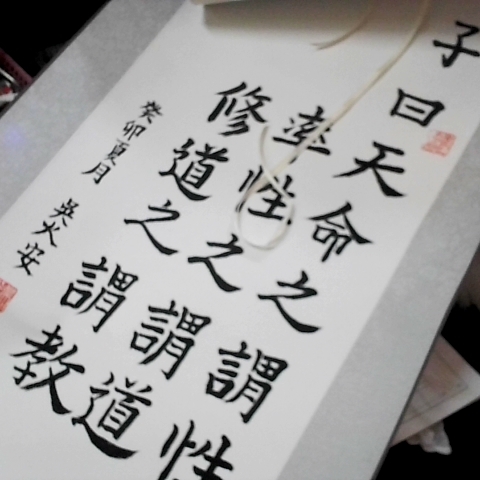 子曰天命之謂性
率性之謂道
修道之謂教
癸卯夏月 吳火安